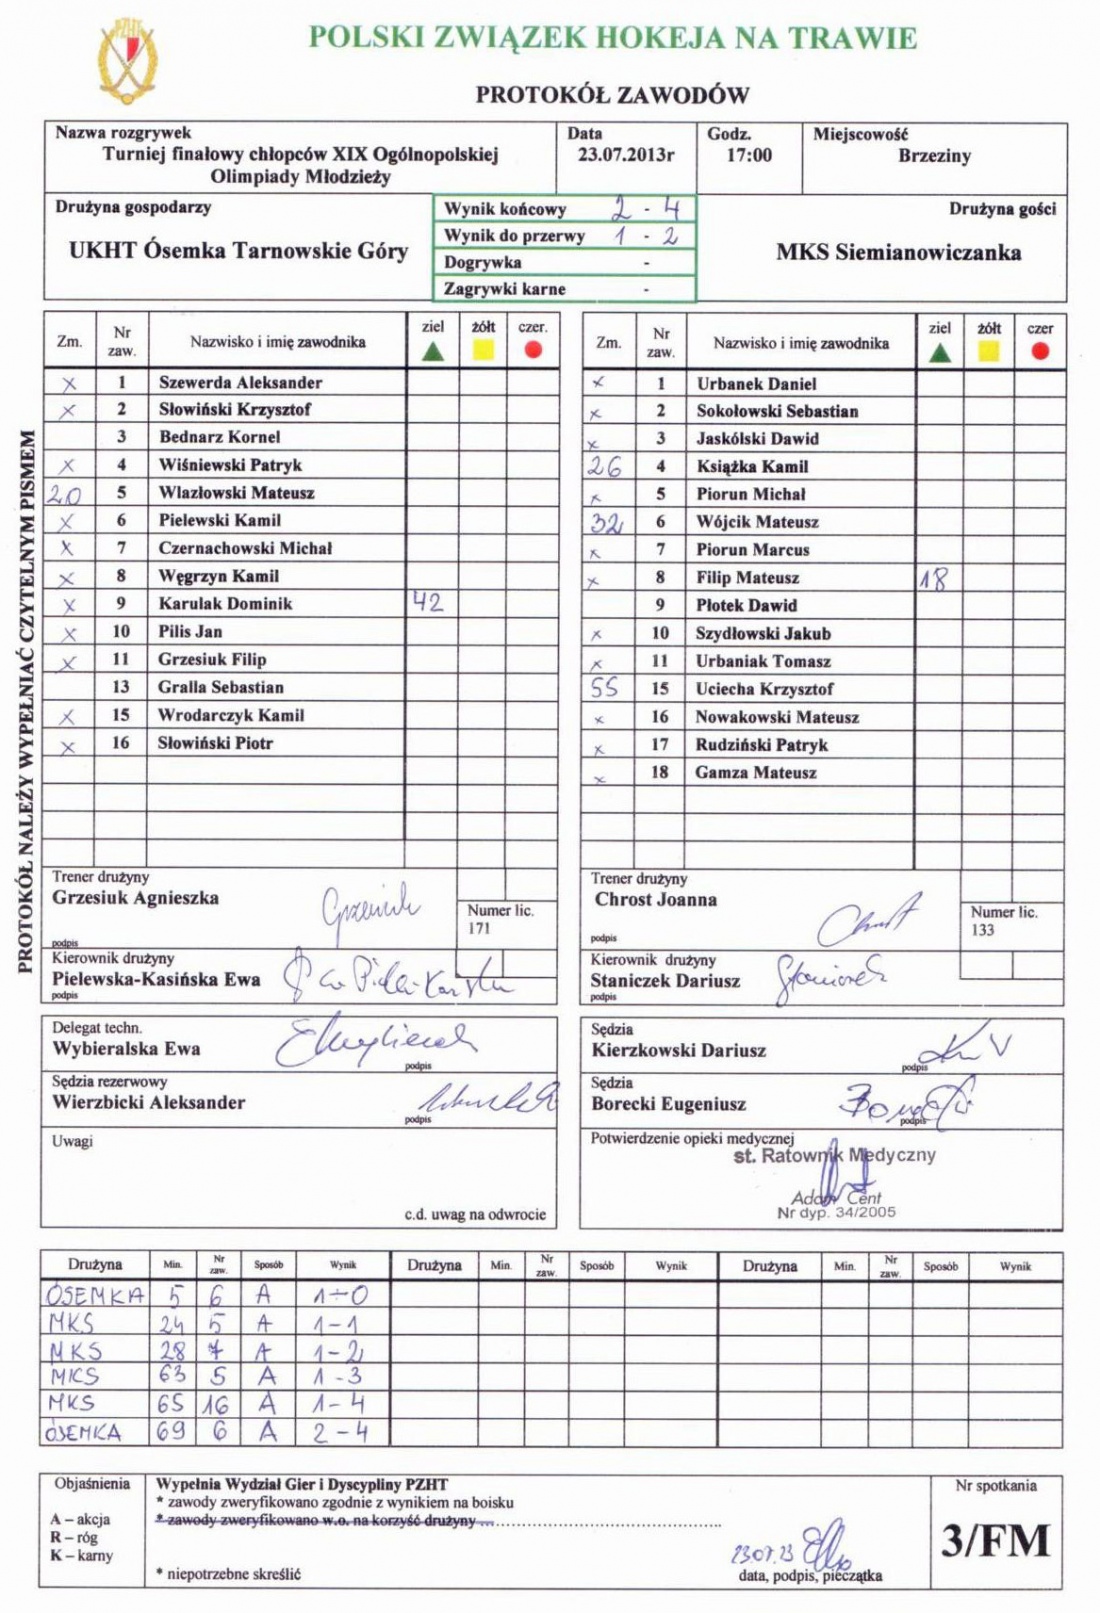 PZHT
POLSKI ZWIĄZEK HOKEJA NA TRAWIE
PROTOKÓŁ ZAWODÓW
Nazwa rozgrywek
Turniej finałowy chłopców XIX Ogólnopolskiej
Olimpiady Młodzieży
Data
23.07.2013r
Godz.
17:00
Miejscowość
Brzeziny
Drużyna gospodarzy
UKHT Ósemka Tarnowskie Góry
Wynik końcowy 2 - 4
Wynik do przerwy 1 - 2
Dogrywka -
Zagrywki karne -
Drużyna gości
MKS Siemianowiczanka
PROTOKÓŁ NALEŻY WYPEŁNIAĆ CZYTELNYM PISMEM
Zm. Nr zaw. Nazwisko i imię zawodnika ziel żółt czer.
x 1 Szewerda Aleksander
x 2 Słowiński Krzysztof
3 Bednarz Kornel
x 4 Wiśniewski Patryk
20 5 Wlazłowski Mateusz
x 6 Pielewski Kamil
x 7 Czernachowski Michał
x 8 Węgrzyn Kamil
x 9 Karulak Dominik 42
x 10 Pilis Jan
x 11 Grzesiuk Filip
13 Gralla Sebastian
x 15 Wrodarczyk Kamil
x 16 Słowiński Piotr
Zm. Nr zaw. Nazwisko i imię zawodnika ziel żółt czer
x 1 Urbanek Daniel
x 2 Sokołowski Sebastian
x 3 Jaskólski Dawid
26 4 Książka Kamil
x 5 Piorun Michał
32 6 Wójcik Mateusz
x 7 Piorun Marcus
x 8 Filip Mateusz 18
9 Płotek Dawid
x 10 Szydłowski Jakub
x 11 Urbaniak Tomasz
55 15 Uciecha Krzysztof
x 16 Nowakowski Mateusz
x 17 Rudziński Patryk
x 18 Gamza Mateusz
Trener drużyny
Grzesiuk Agnieszka
podpis
Numer lic.
171
Kierownik drużyny
Pielewska-Kasińska Ewa
podpis
Trener drużyny
Chrost Joanna
podpis
Numer lic.
133
Kierownik drużyny
Staniczek Dariusz
podpis
Delegat techn.
Wybieralska Ewa
podpis
Sędzia rezerwowy
Wierzbicki Aleksander
podpis
Uwagi
c.d. uwag na odwrocie
Sędzia
Kierzkowski Dariusz
podpis
Sędzia
Borecki Eugeniusz
podpis
Potwierdzenie opieki medycznej
st. Ratownik Medyczny
Adam Cent
Nr dyp. 34/2005
Drużyna Min. Nr zaw. Sposób Wynik Drużyna Min. Nr zaw. Sposób Wynik Drużyna Min. Nr zaw. Sposób Wynik
ÓSEMKA 5 6 A 1-0
MKS 24 5 A 1-1
MKS 28 7 A 1-2
MKS 63 5 A 1-3
MKS 65 16 A 1-4
ÓSEMKA 69 6 A 2-4
Objaśnienia
A – akcja
R – róg
K – karny
Wypełnia Wydział Gier i Dyscypliny PZHT
* zawody zweryfikowano zgodnie z wynikiem na boisku
* zawody zweryfikowano w.o. na korzyść drużyny
* niepotrzebne skreślić
23.07.23
data, podpis, pieczątka
Nr spotkania
3/FM